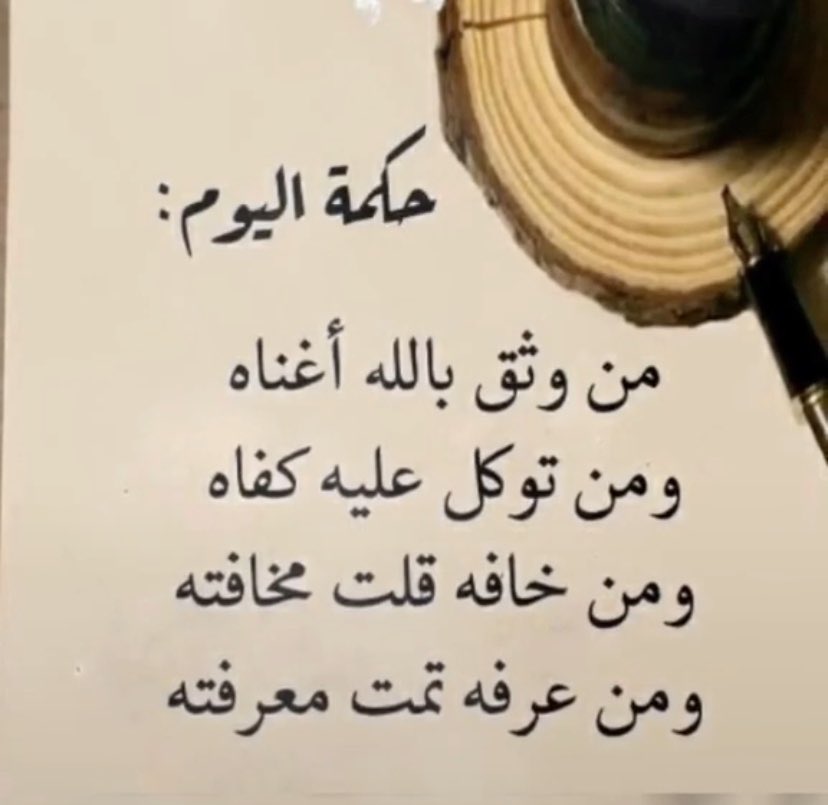 حكمة اليوم:
من وثق بالله أغناه
ومن توكل عليه كفاه
ومن خافه قلت مخافته
ومن عرفه تمت معرفته